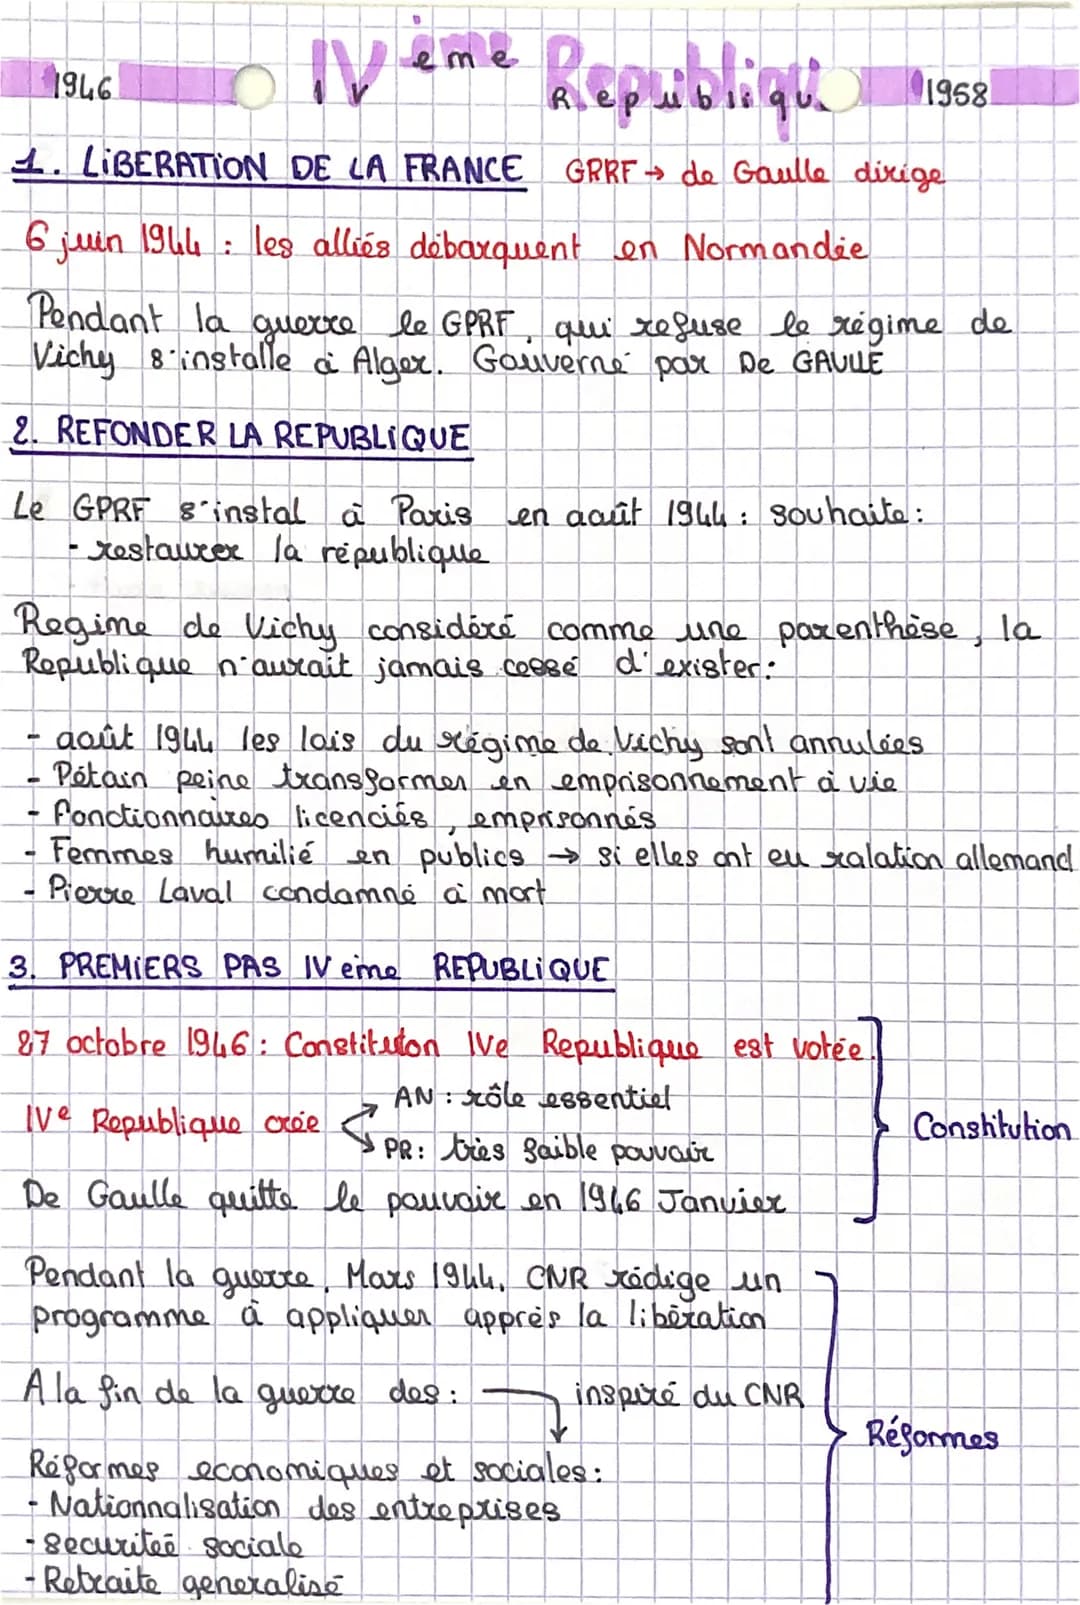 1946 IVème Republiqu 1958
1. LIBERATION DE LA FRANCE GRRF → de Gaulle dirige
6 juin 1944 : les alliés débarquent en Normandie
Pendant la guerre le GPRF, qui refuse le régime de
Vichy s'installe à Alger. Gouverné par De GAULLE
2. REFONDER LA REPUBLIQUE
Le GPRF s'instal à Paris en août 1944 : souhaite :
- restaurer la république
Regime de Vichy considéré comme une parenthèse, la
Republique n'aurait jamais cessé d'exister :
- août 1944 les lois du régime de Vichy sont annulées
- Pétain peine transformer en emprisonnement à vie
- fonctionnaires licenciés, emprisonnés
- Femmes humilié en publics → si elles ont eu ralation allemand
- Pierre Laval condamné à mort
3. PREMIERS PAS IVeme REPUBLIQUE
27 octobre 1946 : Constituton IVe Republique est votée.
AN : rôle essentiel
IVe Republique crée
PR : très faible pouvoir
Constitution
De Gaulle quitte le pouvoir en 1946 Janvier
Pendant la guerre, Mars 1944, CNR rédige un
programme à appliquer apprés la libération
A la fin de la guerre des : inspiré du CNR
Réformes
Réformes economiques et sociales :
- Nationnalisation des entreprises
- securiteé sociale
- Retraite generalisé